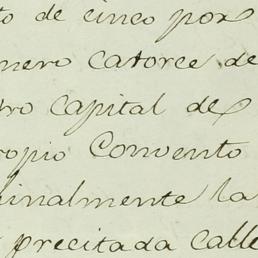 to de cinco por
nero catorce de
tro capital de
ropio Convento
inalmente la
precitada calle